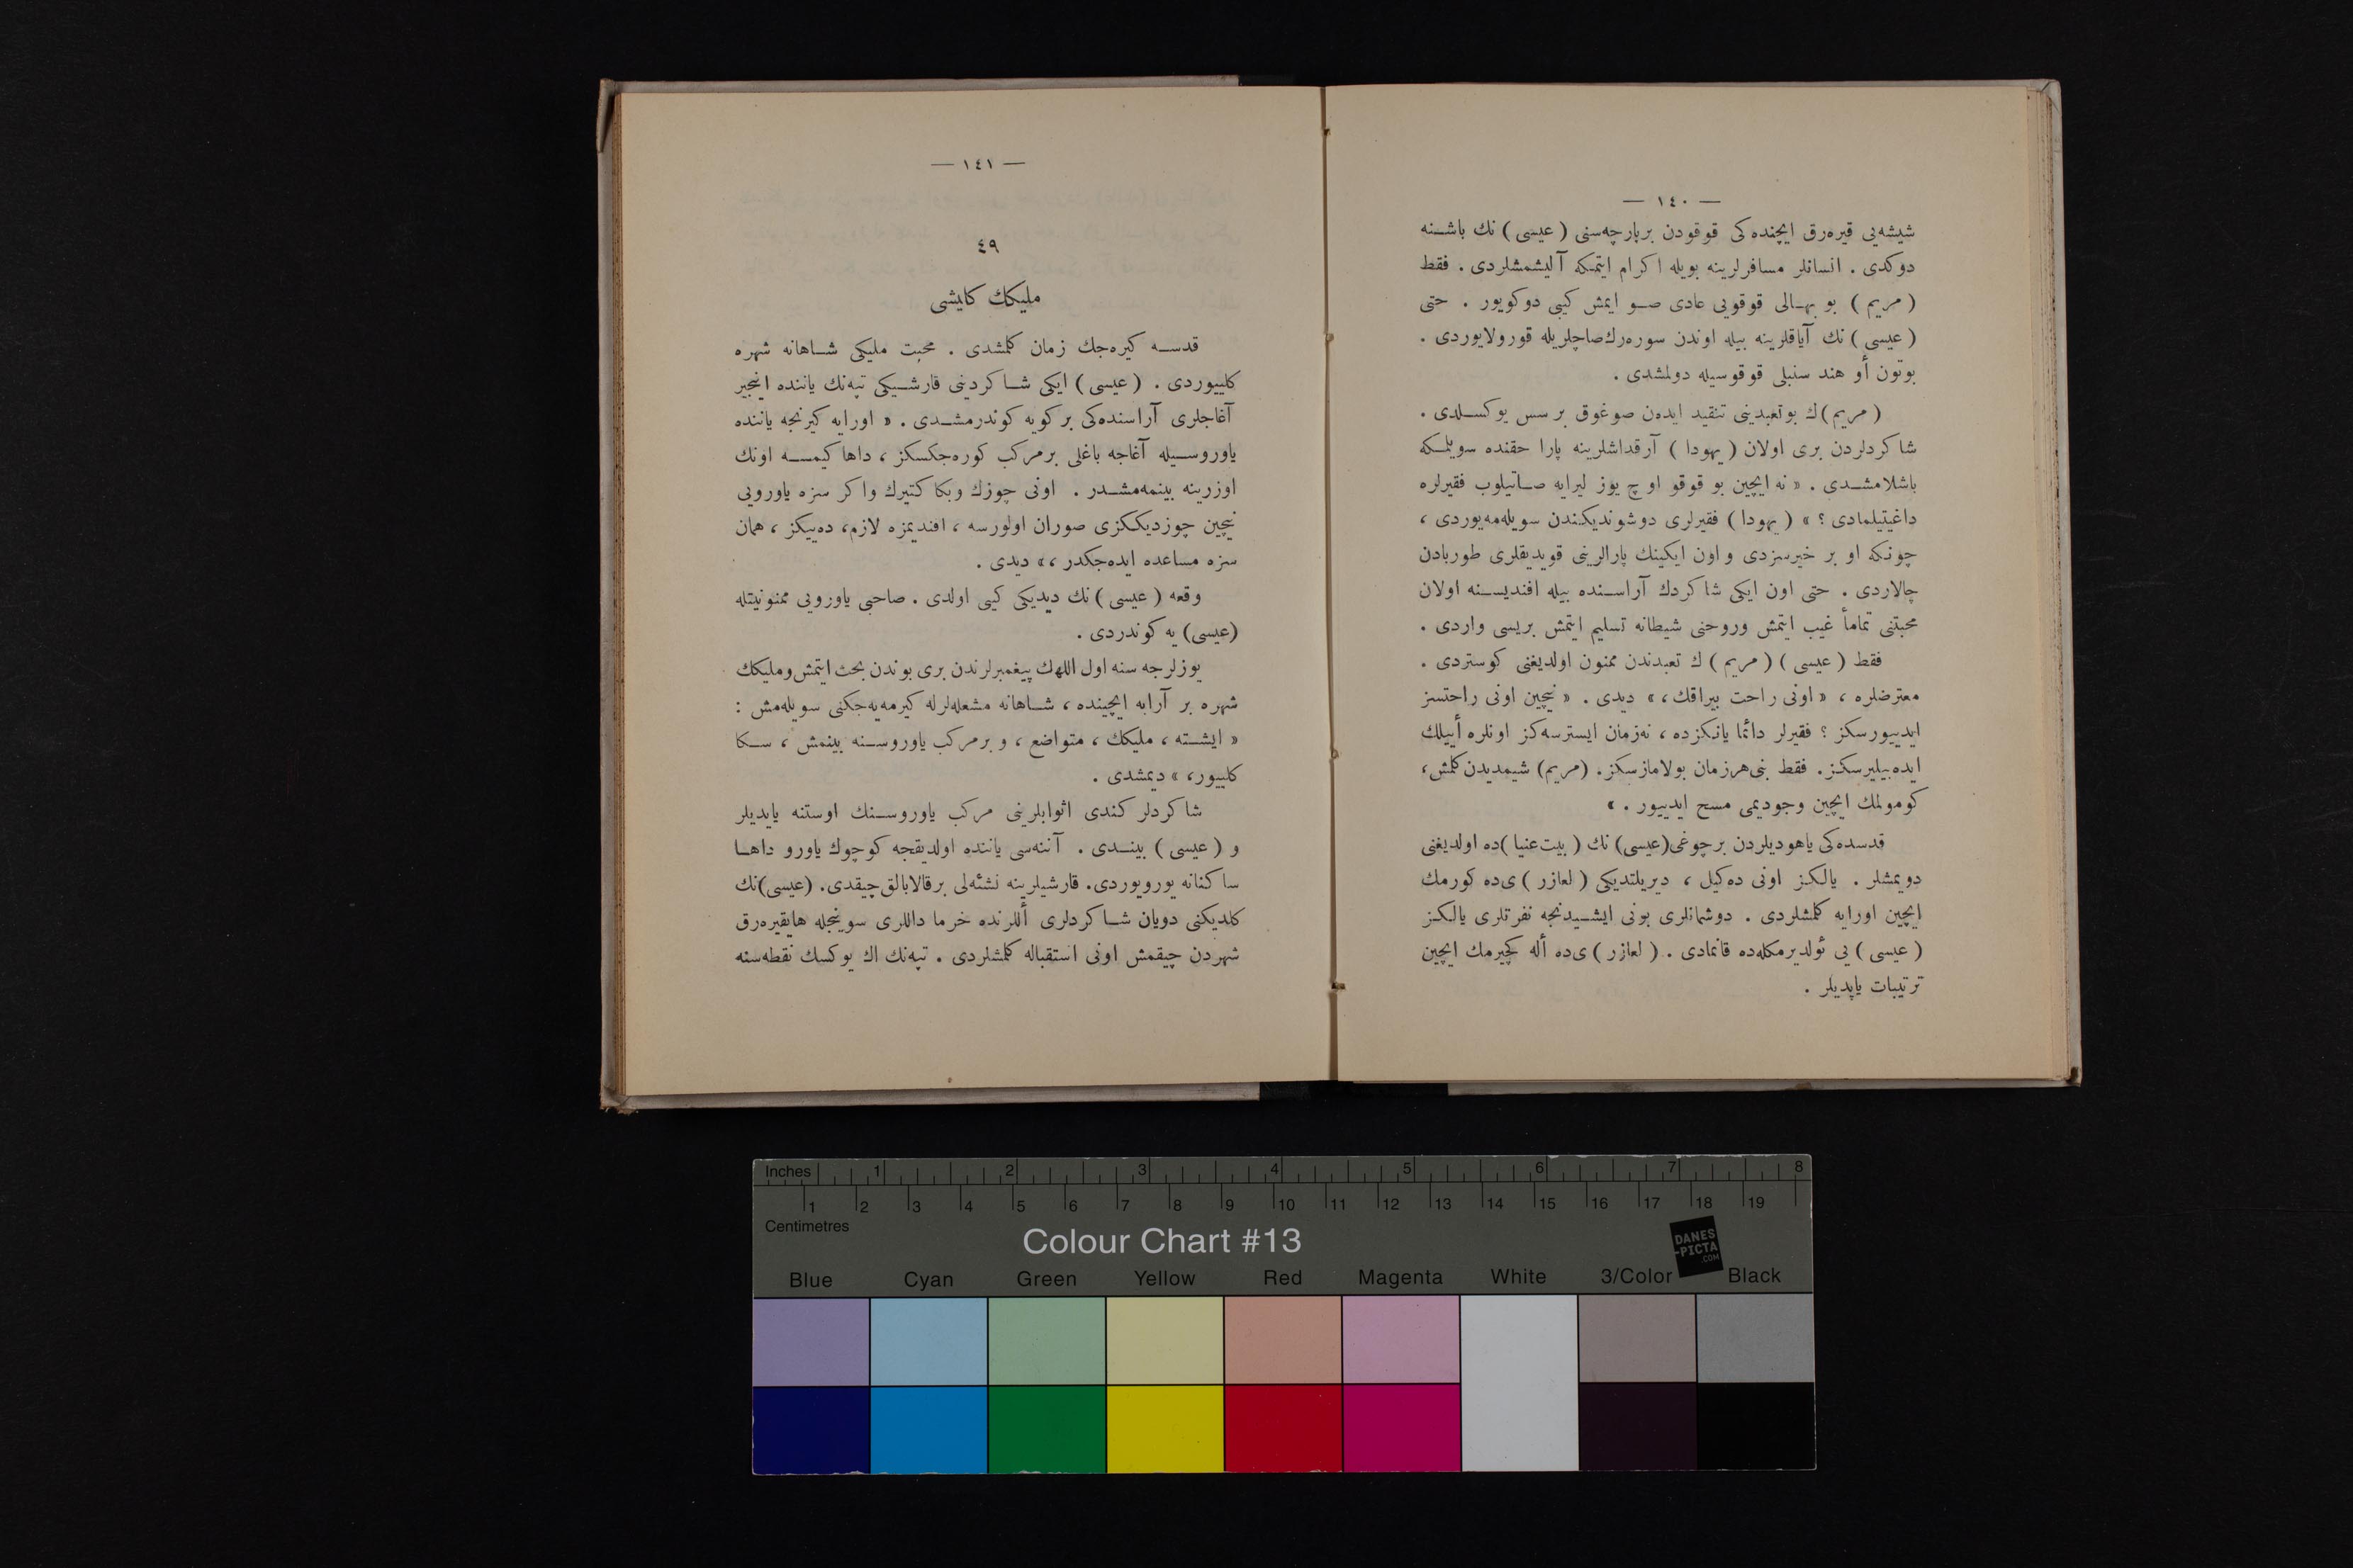 — ١٤٠ —
شیشه‌یی قیره‌رق ایچنده‌کی قوقودن برپارچه‌سنی ( عیسی ) نك باشـنه
دوکدی . انسانلر مسافرلرینه بویله اکرام ایتمکه آلیشمشلردی . فقط
( مریم ) بو بهـالی قوقویی عادی صـو ایمش کیبی دوکویور . حتی
( عیسی ) نك آیاقلرینه بیله اوندن سوره‌رك‌صاچلریله قورولایوردی .
بوتون أو هند سنبلی قوقوسیله دولمشدی .
( مریم )ك بوتعبدینی تنقید ایده‌ن صوغوق بر سس یوکسـلدی .
شاکردلردن بری اولان ( یهودا ) آرقداشلرینه پارا حقنده سویلمـکه
باشلامشـدی . « نه ایچین بو قوقو اوچ یوز لیرایه صـاتیلوب فقیرلره
داغیتیلمادی ؟ » ( یهودا ) فقیرلری دوشوندیکـندن سویله‌مه‌یوردی ،
چونکه او بر خیرسزدی و اون ایکینك پارالرینی قویدیقلری طوربادن
چالاردی . حتی اون ایکی شاکردك آراسـنده بیله افندیسـنه اولان
محبتنی تماماً غیب ایتمش وروحنی شیطانه تسلیم ایتمش بریسی واردی .
فقط ( عیسی ) ( مریم ) ك تعبدندن ممنون اولدیغنی کوستردی .
معترضلره ، « اونی راحت بیراقك ، » دیدی . « نیچین اونی راحتسز
ایدییورسکز ؟ فقیرلر دائما یانـکزده ، نه‌زمان ایسترسه‌کز اونلره أییلك
ایده‌بیلیرسکـز . فقط بنی‌هرزمان بولامازسکز . (مریم) شیمدیدن کلمش ،
کومولمك ایچین وجودیمی مسح ایدییور . »
قدسده‌کی یاهودیلردن برچوغی(عیسی) نك ( بیت‌عنیا )ده اولدیغنی
دویمشلر . یالکـز اونی ده‌کیل ، دیریلتدیکی ( لعازر ) ی‌ده کورمك
ایچین اورایه کلمشلردی . دوشمانلری بونی ایشـیدنجه نفرتلری یالکـز
( عیسی ) یی ئولدیرمکله‌ده قانمادی . ( لعازر ) ی‌ده أله کچیرمك ایچین
ترتیبات یاپدیلر .
— ١٤١ —
٤٩
ملیکك کلیشی
قدسـه کیره‌جك زمان کلمشدی . محبت ملیکی شـاهانه شهره
کلییوردی . ( عیسی ) ایکی شـاکردینی قارشـیکی تپه‌نك یاننده انجیر
آغاجلری آراسنده‌کی برکویه کوندرمشـدی . « اورایه کیرنجه یاننده
یاوروسـیله آغاجه باغلی برمرکب کوره‌جکسکز ، داها کیمسـه اونك
اوزرینه بینمه‌مشـدر . اونی چوزك وبکا کتیرك واکر سزه یاورویی
نیچین چوزدیککزی صوران اولورسه ، افندیمزه لازم، ده‌ییکز ، همان
سزه مساعده ایده‌جکدر ، » دیدی .
وقعه ( عیسی ) نك دیدیکی کیبی اولدی . صاحبی یاورویی ممنونیتله
(عیسی) یه کوندردی .
یوزلرجه سنه اول اللهك پیغمبرلرندن بری بوندن بحث ایتمش وملیکك
شهره بر آرابه ایچینده ، شـاهانه مشعله‌لرله کیرمه‌یه‌جکنی سویله‌مش :
« ایشـته ، ملیکك ، متواضع ، و برمرکب یاوروسـنه بینمش ، سـکا
کلییور ، » دیمشدی .
شاکردلر کندی اثوابلرینی مرکب یاوروسـنك اوستنه یایدیلر
و ( عیسی ) بینـدی . آننه‌سی یاننده اولدیقجه کوچوك یاورو داهـا
ساکنانه یورویوردی. قارشیلرینه نشئه‌لی برقالابالق چیقدی. (عیسی)نك
کلدیکنی دویان شـاکردلری أللرنده خرما داللری سوینجله هایقیره‌رق
شهردن چیقمش اونی استقباله کلمشلردی . تپه‌نك اك یوکسك نقطه‌سنه
Inches 1 2 3 4 5 6 7 8
1 2 3 4 5 6 7 8 9 10 11 12 13 14 15 16 17 18 19
Centimetres
Colour Chart #13
DANES
-PICTA
.COM
Blue Cyan Green Yellow Red Magenta White 3/Color Black